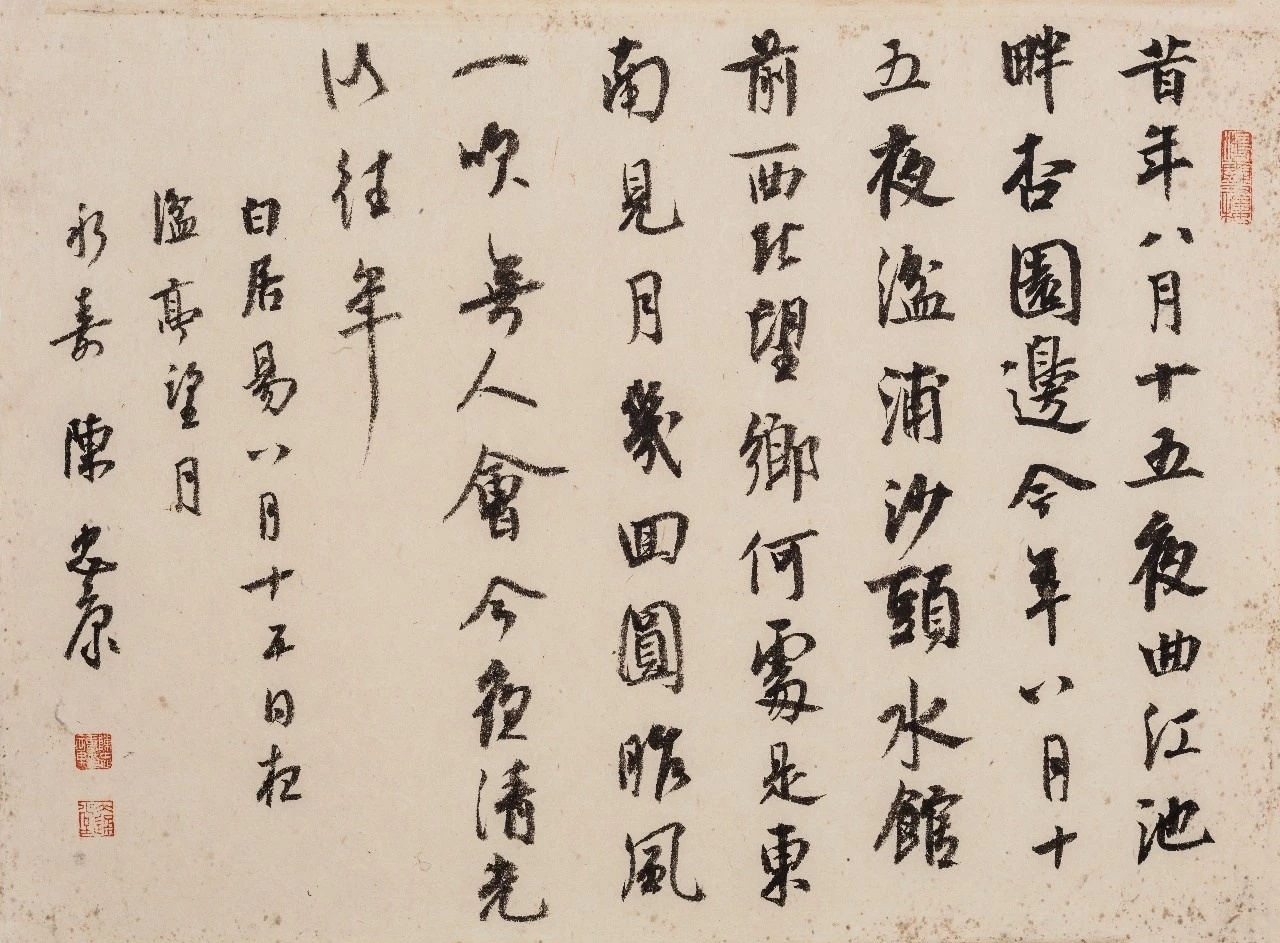 昔年八月十五夜曲江池
畔杏園邊今年八月十
五夜湓浦沙頭水館
前西北望鄉何處是東
南見月幾回圓昨風
一吹無人會今夜清光
似往年
白居易八月十五日夜
湓亭望月
永壽 陳忠康